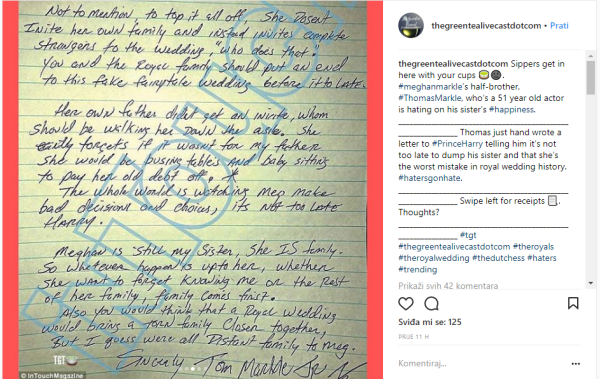 Not to mention to top it all off, She Dosent
Inite her own family and instead invites complete
strangers to the wedding. "who does that"
You and the Royal family should put an end
to this fake fairytale wedding before it to LATE.
Her own father didn't get an invite, whom
should be walking her Down the asle. She
forgets if it wasnt for my father
She would be busing tables AND baby sitting
to pay her old debt off.
The whole world is watching Meg make
bad decisions and choices, its Not too LATE
HARRY.
Meghan is still my Sister, She IS family.
So whatever happen is up to her, whether
She want to forget Knowing me or the Rest
of her family, family comes first.
Also you would think that a Royal wedding
would bring a torn family Closer together,
But I guess were all Distant family to Meg.
Sincerly Tom Markle Jr
TGT
© InTouchMagazine
thegreentealivecastdotcom • Prati
thegreentealivecastdotcom Sippers get in
here with your cups
#meghanmarkle's half-brother,
#ThomasMarkle, who's a 51 year old actor
is hating on his sister's #happiness.
Thomas just hand wrote a
letter to #PrinceHarry telling him it's not
too late to dump his sister and that she's
the worst mistake in royal wedding history.
#hatersgonhate.
Swipe left for receipts
Thoughts?
#tgt
#thegreentealivecastdotcom #theroyals
#theroyalwedding #thedutchess #haters
#trending
Prikaži svih 42 komentara
Sviđa mi se: 125
PRIJE 11 H
Komentiraj...